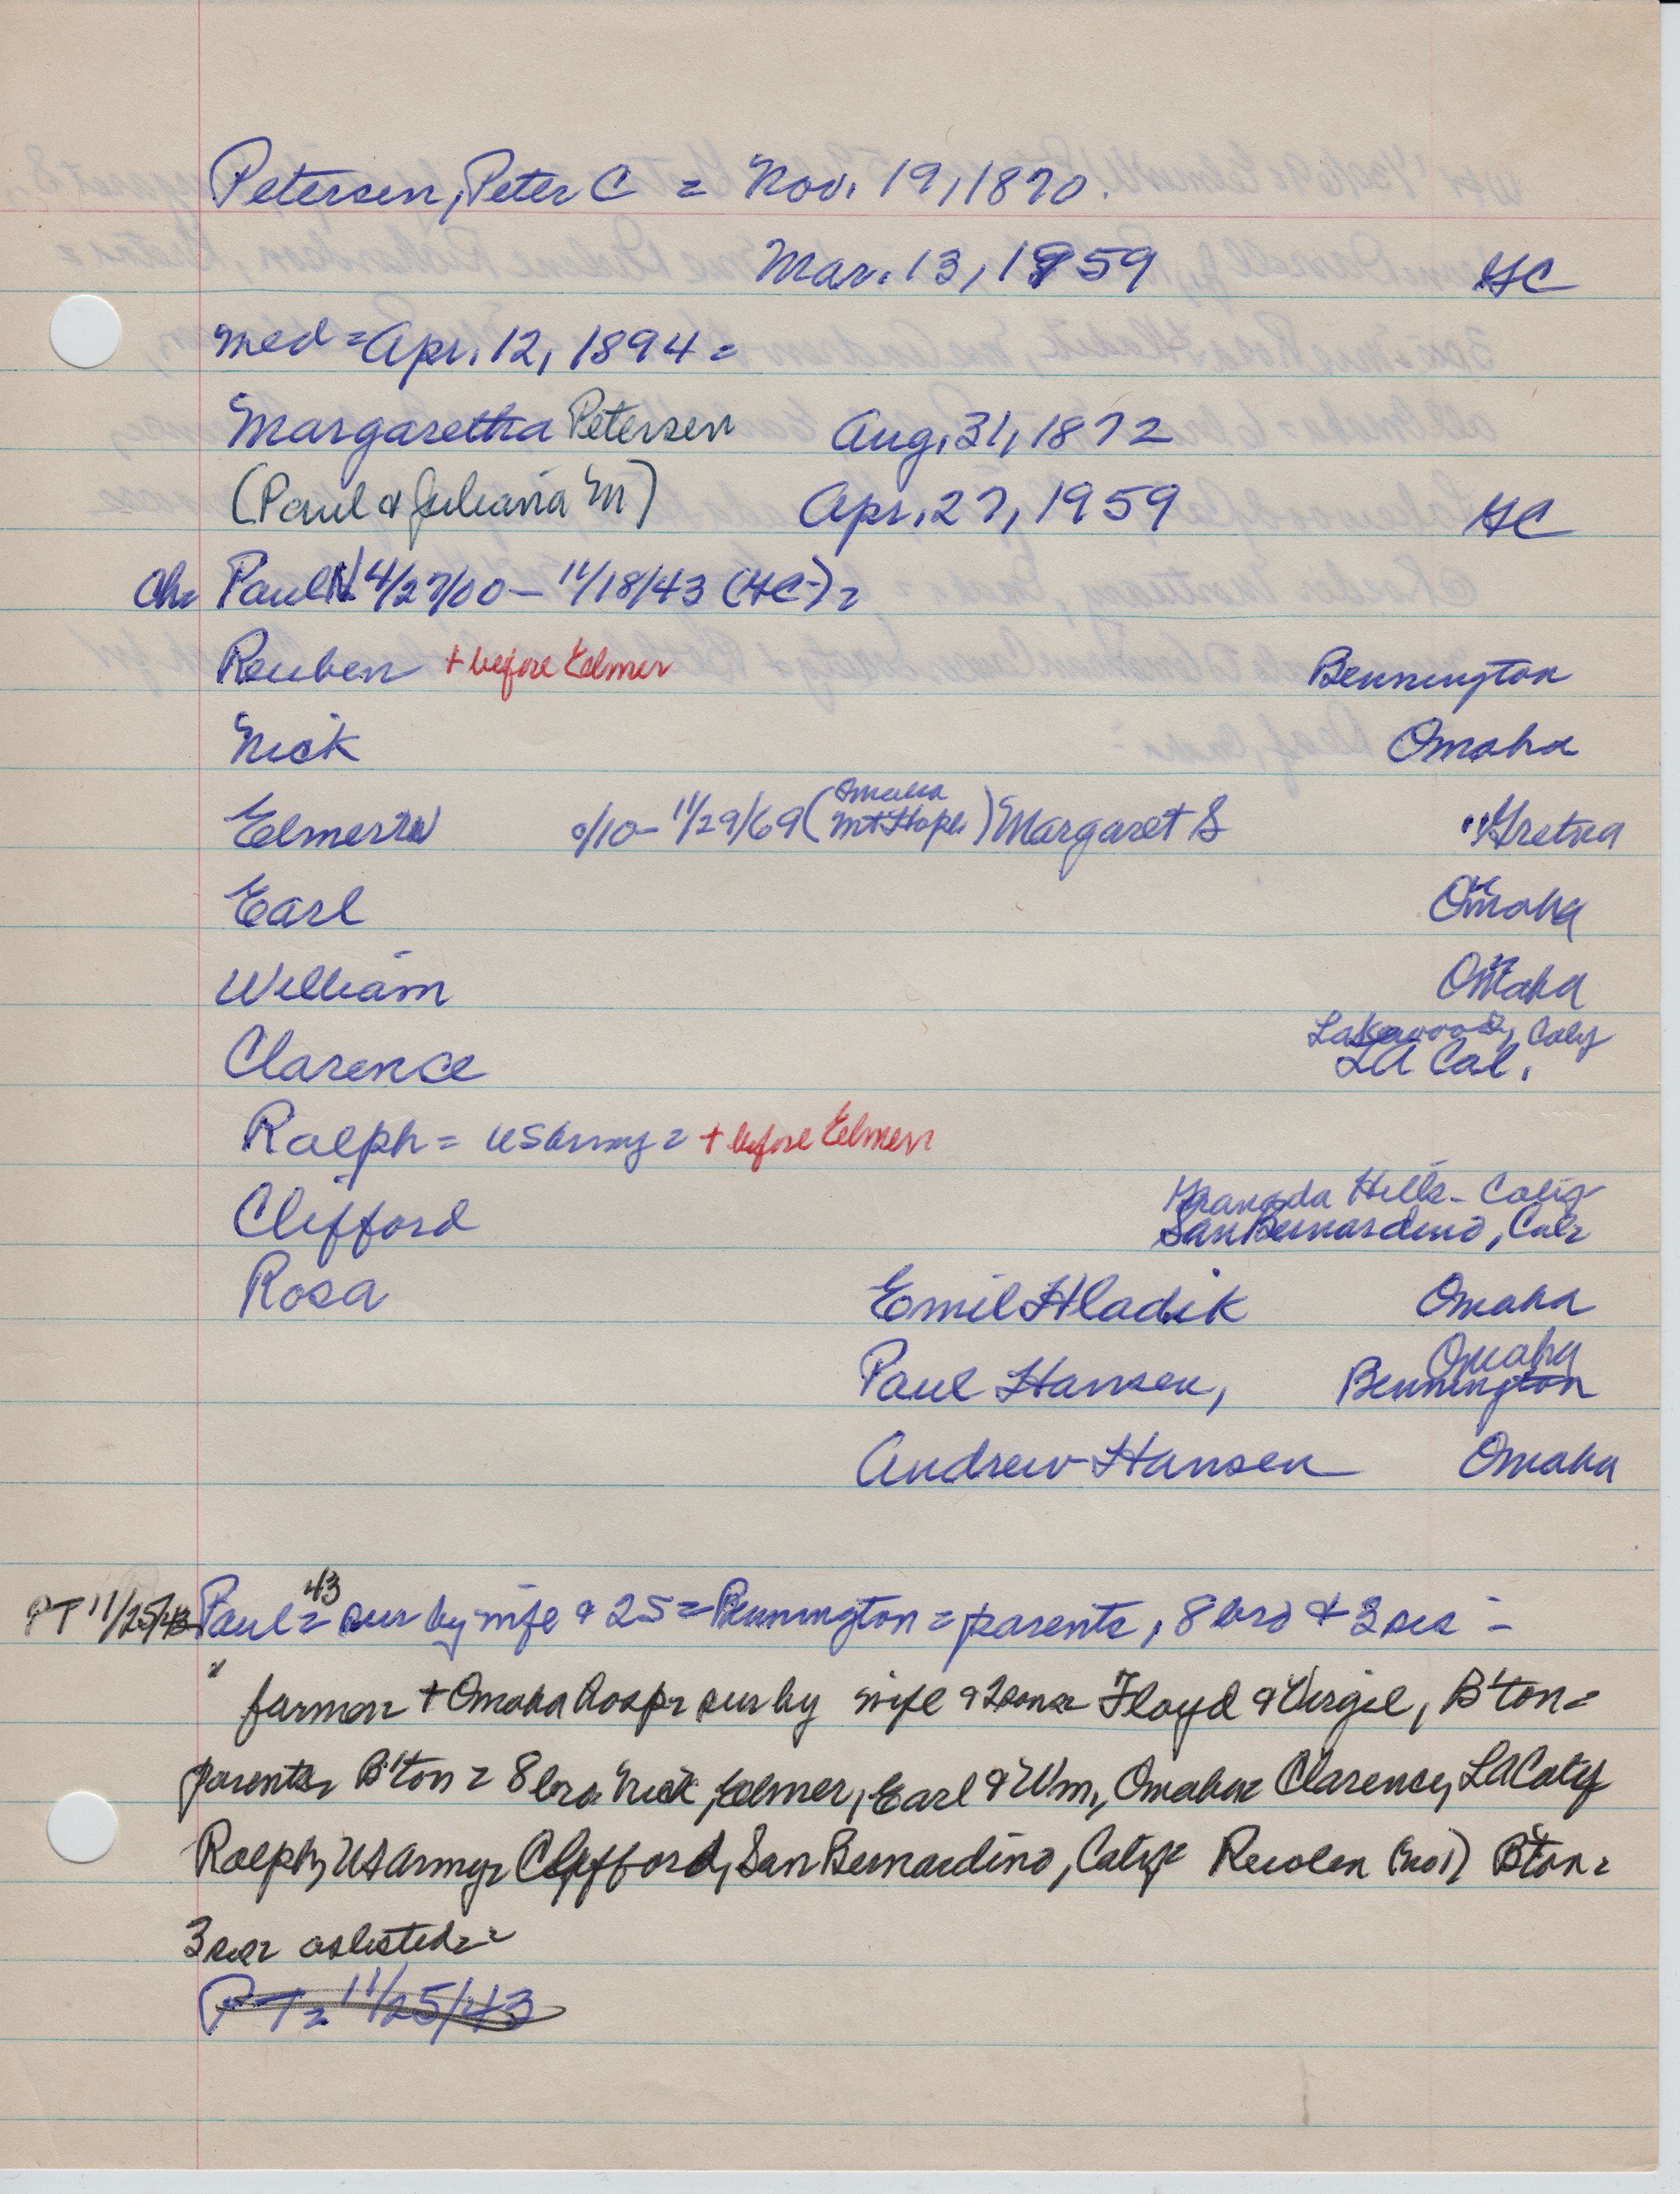 Petersen, Peter C = Nov. 19, 1870.
Mar. 13, 1959 HC
Med = Apr. 12, 1894 =
Margaretha Petersen Aug. 31, 1872
(Paul & Juliana M) Apr. 27, 1959 HC
Ch= Paul N 4/27/00 - 11/18/43 (HC) =
Reuben + before Elmer Bennington
Nick Omaha
Elmer W 0/10 - 11/29/69 (Omaha Mt Hope) Margaret S " Gretna
Earl Omaha
William Omaha
Lakewood, Calif
Clarence LA Cal.
Ralph = US Army = + before Elmer
Granada Hills - Calif
Clifford San Bernardino, Cal=
Rosa Emil Hladik Omaha
Omaha
Paul Hansen, Bennington
Andrew Hansen Omaha
43
PT 11/25/43 Paul = sur by wife & 2S = Bennington = parents, 8 bro & 3 sis =
" farmer = + Omaha hosp = sur by wife & 2 sons = Floyd & Virgil, B'ton =
parents = B'ton = 8 bro = Nick, Elmer, Earl & Wm., Omaha = Clarence, LA Calif
Ralph, US Army = Clifford, San Bernardino, Calif = Reuben B'ton =
3 sis = as listed = =
PT = 11/25/43